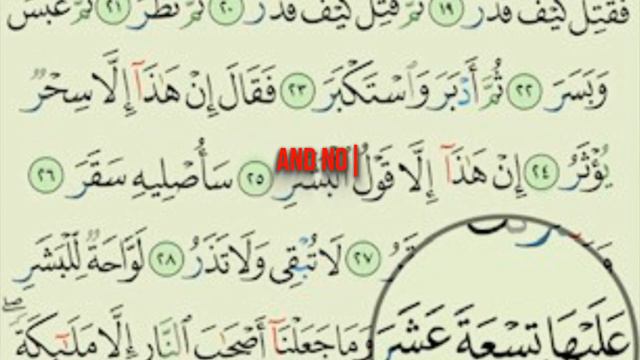 فَقُتِلَ كَيْفَ قَدَّرَ ١٩ ثُمَّ قُتِلَ كَيْفَ قَدَّرَ ٢٠ ثُمَّ نَظَرَ ٢١ ثُمَّ عَبَسَ
وَبَسَرَ ٢٢ ثُمَّ أَدْبَرَ وَاسْتَكْبَرَ ٢٣ فَقَالَ إِنْ هَٰذَا إِلَّا سِحْرٌ
يُؤْثَرُ ٢٤ إِنْ هَٰذَا إِلَّا قَوْلُ الْبَشَرِ ٢٥ سَأُصْلِيهِ سَقَرَ ٢٦
AND NO
٢٧ لَا تُبْقِي وَلَا تَذَرُ ٢٨ لَوَّاحَةٌ لِّلْبَشَرِ
عَلَيْهَا تِسْعَةَ عَشَرَ وَمَا جَعَلْنَا أَصْحَٰبَ النَّارِ إِلَّا مَلَٰٓئِكَةً